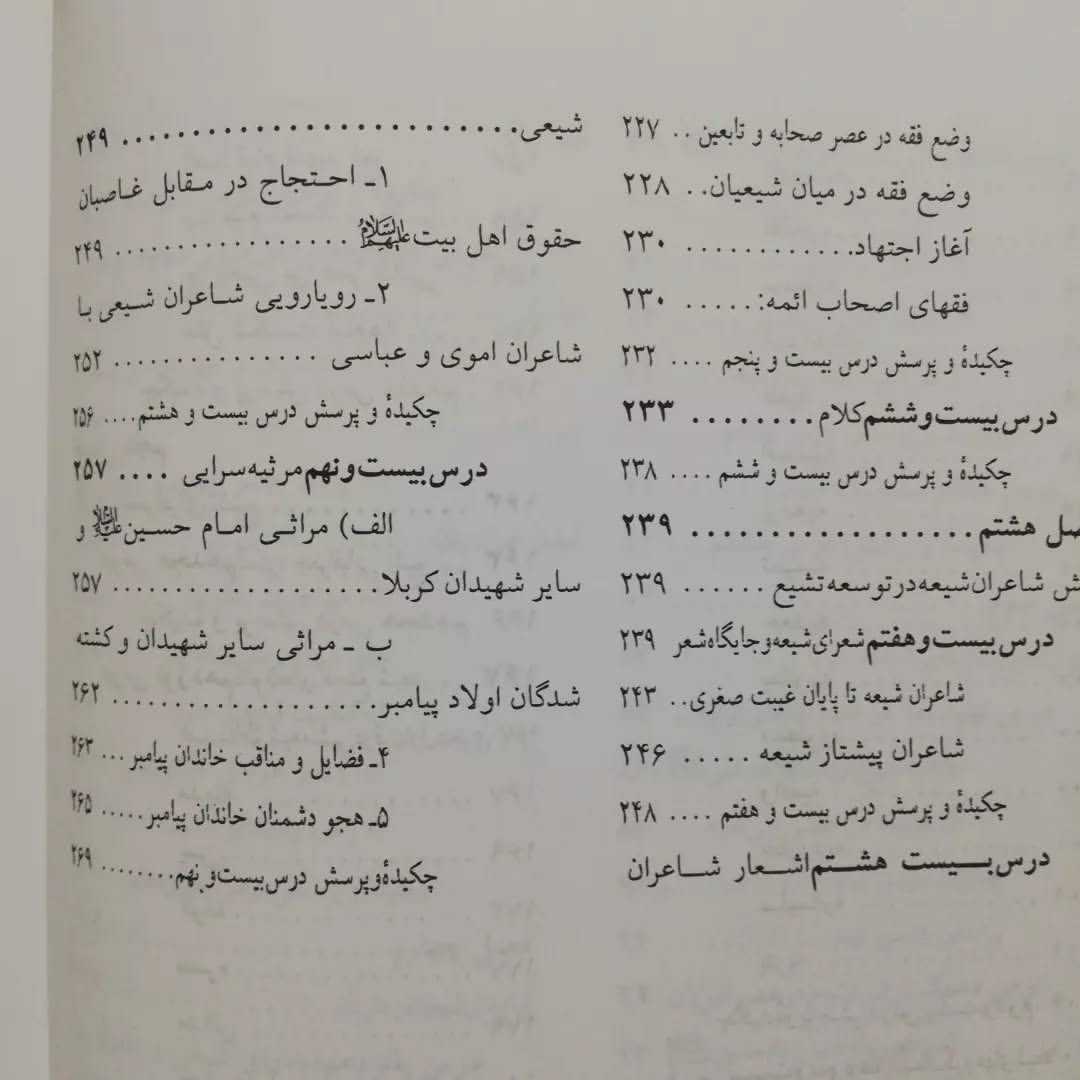 وضع فقه در عصر صحابه و تابعین .. ۲۲۷
وضع فقه در میان شیعیان.. ۲۲۸
آغاز اجتهاد............ ۲۳۰
فقهای اصحاب ائمه: ..... ۲۳۰
چکیدهٔ و پرسش درس بیست و پنجم .... ۲۳۲
درس بیست و ششم کلام ........ ۲۳۳
چکیدهٔ و پرسش درس بیست و ششم .... ۲۳۸
هشتم .................. ۲۳۹
شاعران شیعه در توسعه تشیع ...... ۲۳۹
درس بیست و هفتم شعرای شیعه و جایگاه شعر ۲۳۹
شاعران شیعه تا پایان غیبت صغری.. ۲۴۳
شاعران پیشتاز شیعه ..... ۲۴۶
چکیدهٔ و پرسش درس بیست و هفتم .... ۲۴۸
درس بیست هشتم اشعار شاعران
شیعی......................... ۲۴۹
۱ـ احتجاج در مقابل غاصبان
حقوق اهل بیت علیهم‌السلام ................. ۲۴۹
۲ـ رویارویی شاعران شیعی با
شاعران اموی و عباسی ............... ۲۵۲
چکیدهٔ و پرسش درس بیست و هشتم.... ۲۵۶
درس بیست و نهم مرثیه‌سرایی .... ۲۵۷
الف) مراثی امام حسین علیه‌السلام و
سایر شهیدان کربلا................... ۲۵۷
ب ـ مراثی سایر شهیدان و کشته
شدگان اولاد پیامبر................... ۲۶۲
۴ـ فضایل و مناقب خاندان پیامبر ... ۲۶۳
۵ـ هجو دشمنان خاندان پیامبر..... ۲۶۵
چکیدهٔ و پرسش درس بیست و نهم........ ۲۶۹